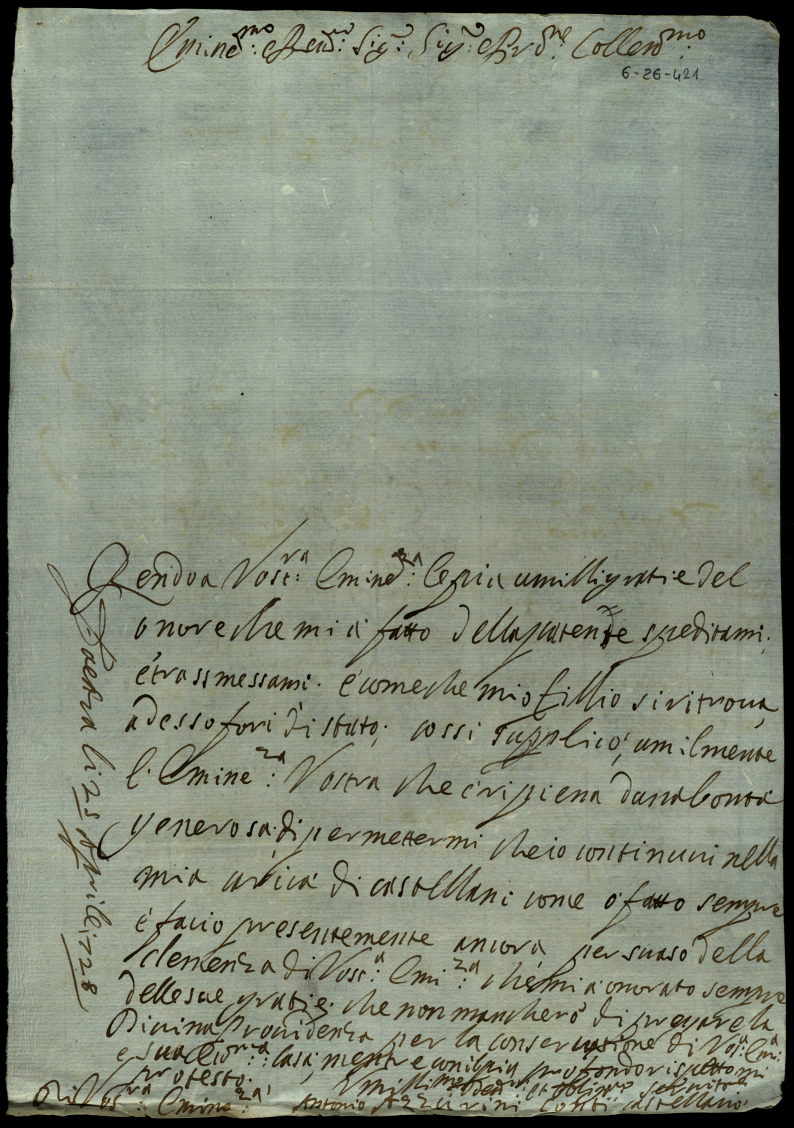 Emined.mo e Rend.mo Sig.r Sig.r e Prd.ne Collend.mo
6-26-421
Rendo a Vost.ra Emined.za le piu umilli gratie del
onore che mi à fatto della patente speditami.
é trassmessami. é come che mio fillio si ritroua
adesso fori di stato; cossi supplico, umilmente
l'Emine.za Vostra che é ripiena d una bontà
generosa, di permettermi che io continuui nella
mia carica di castellani come ó fatto sempre
é facio presentemente ancora, per suaso della
clemenza di Vost.a Emi.za che mi à onorato sempre
delle sue gratie. che non mancherò di pregare la
Diuina Prouidenza per la conseruatione di Vos.a Em.a
e sua casa, mentre con il piu profondo rispetto mi
protesto.
Di Vos.ra Emine.za
Antonio Azzurini Conti castellano
li 25 Aprile 1728